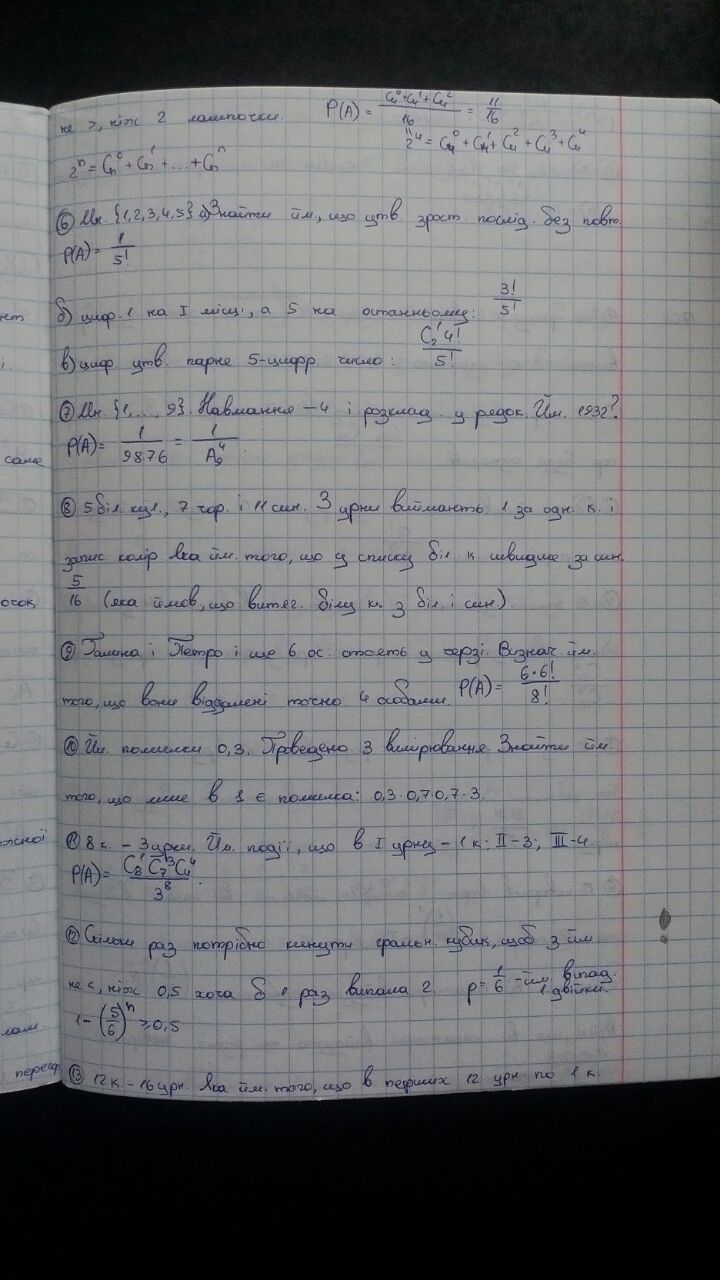 не >, ніж 2 лампочки. P(A) = (C₄⁰+C₄¹+C₄²)/16 = 11/16
2⁴ = C₄⁰ + C₄¹ + C₄² + C₄³ + C₄⁴
2ⁿ = Cₙ⁰ + Cₙ¹ + ... + Cₙⁿ
⑥ Мн. {1,2,3,4,5} а) Знайти йм, що утв. зрост. послід. без повт.
P(A) = 1/5!
б) циф. 1 на I місці, а 5 на останньому: 3!/5!
в) циф. утв. парне 5-цифр число: C₂¹4!/5!
⑦ Мн. {1,..., 9}. Навмання – 4 і розклад. у рядок. Йм. 1932?
P(A) = 1/(9·8·7·6) = 1/A₉⁴
⑧ 5 біл. кул., 7 чор. і 11 син. З урни виймають 1 за одн. к. і
запис. колір. Яка йм. того, що у списку біл. к швидше за син.
5/16 (яка ймов, що витяг. білу к. з біл. і син).
⑨ Галина і Петро і ще 6 ос. стоять у черзі. Визнач. йм.
того, що вони віддалені точно 4 особами. P(A) = 6·6!/8!
⑩ Йм. помилки 0,3. Проведено 3 вимірювання. Знайти йм.
того, що лише в 1 є помилка: 0,3·0,7·0,7·3.
⑪ 8 к. – 3 урни. Йм. події, що в I урну – 1 к; II – 3; III – 4.
P(A) = C₈¹C₇³C₄⁴/3⁸.
⑫ Скільки раз потрібно кинути гральн. кубик, щоб з йм
не <, ніж 0,5 хоча б 1 раз випала 2. p = 1/6 – йм. випад. 1 двійки.
1 – (5/6)ⁿ ≥ 0,5
⑬ 12 к. – 16 урн. Яка йм. того, що в перших 12 урн. по 1 к.
саме
ожної
лам.
переф